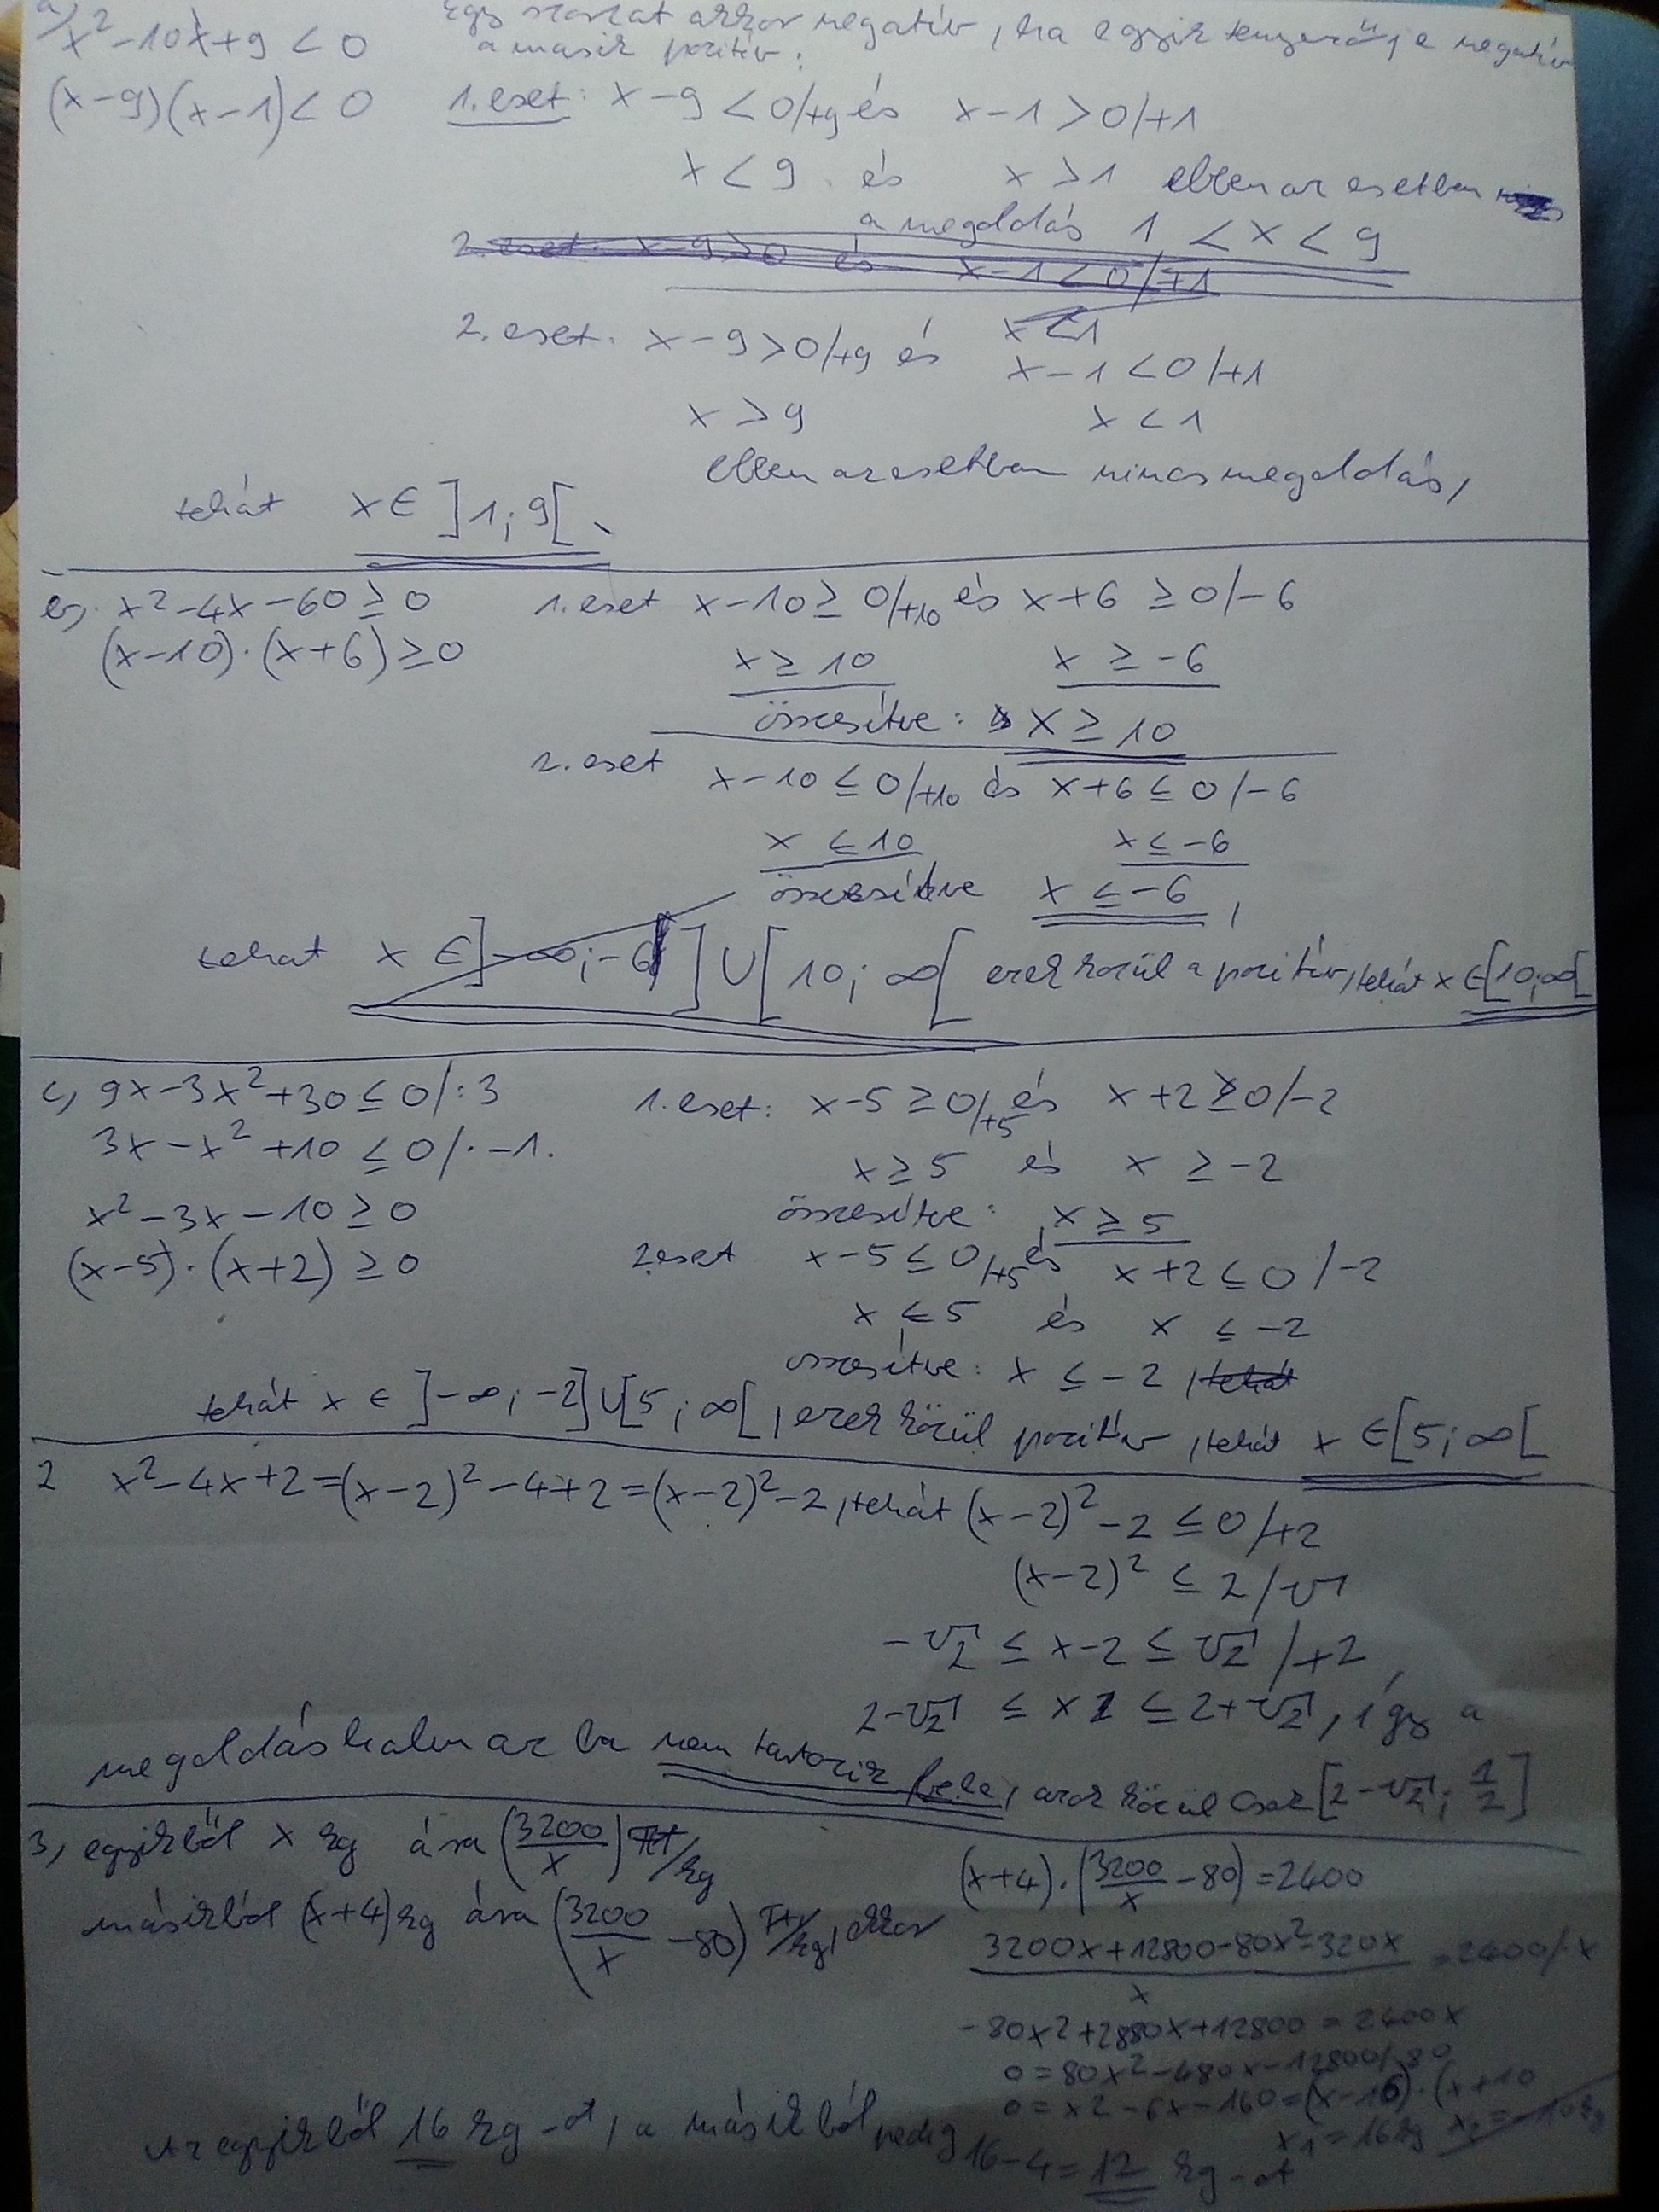 a, x² - 10x + 9 < 0
Egy szorzat akkor negatív, ha egyik tényező
a másik pozitív.
(x-9)(x-1) < 0 1. eset: x-9 < 0 /+9 és x-1 > 0 /+1
x < 9 és x > 1 ebben az esetben
a megoldás 1 < x < 9
2. eset: x-9 > 0 és x-1 < 0 /+1
x < 1
2. eset: x-9 > 0 /+9 és x-1 < 0 /+1
x > 9 x < 1
ebben az esetben nincs megoldás,
tehát x ∈ ]1; 9[
x² - 4x - 60 ≥ 0 1. eset x-10 ≥ 0 /+10 és x+6 ≥ 0 /-6
(x-10)·(x+6) ≥ 0 x ≥ 10 x ≥ -6
összesítve: x ≥ 10
2. eset x-10 ≤ 0 /+10 és x+6 ≤ 0 /-6
x ≤ 10 x ≤ -6
összesítve x ≤ -6,
tehát x ∈ ]-∞; -6] ∪ [10; ∞[ ezek közül a pozitív, tehát x ∈ [10; ∞[
c, 9x - 3x² + 30 ≤ 0 /:3 1. eset: x-5 ≥ 0 /+5 és x+2 ≥ 0 /-2
3x - x² + 10 ≤ 0 /·-1. x ≥ 5 és x ≥ -2
x² - 3x - 10 ≥ 0 összesítve: x ≥ 5
(x-5)·(x+2) ≥ 0 2. eset x-5 ≤ 0 /+5 és x+2 ≤ 0 /-2
x ≤ 5 és x ≤ -2
összesítve: x ≤ -2, tehát
tehát x ∈ ]-∞; -2] ∪ [5; ∞[, ezek közül pozitív, tehát x ∈ [5; ∞[
2 x² - 4x + 2 = (x-2)² - 4 + 2 = (x-2)² - 2, tehát (x-2)² - 2 ≤ 0 /+2
(x-2)² ≤ 2 /√
-√2 ≤ x-2 ≤ √2 /+2
2-√2 ≤ x ≤ 2+√2, így a
megoldáshalmazba nem tartozik bele, azok közül csak [2-√2; 1/2]
3, egyikből x kg ára (3200/x) Ft/kg
másikból (x+4) kg ára (3200/x - 80) Ft/kg, ekkor
(x+4)·(3200/x - 80) = 2400
(3200x + 12800 - 80x² - 320x)/x = 2400 /·x
-80x² + 2880x + 12800 = 2400x
0 = 80x² - 480x - 12800 /:80
0 = x² - 6x - 160 = (x-16)·(x+10
x₁ = 16kg x₂ = -10kg
Az egyikből 16 kg-ot, a másikból pedig 16-4 = 12 kg-ot